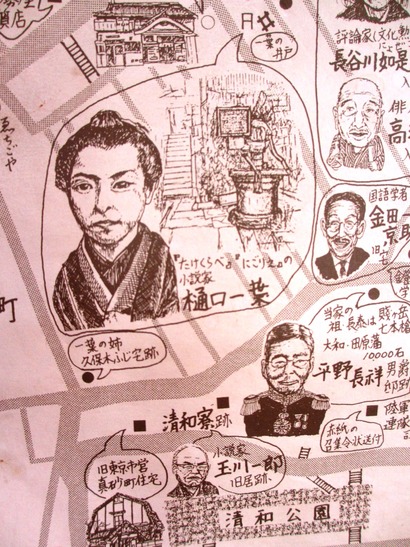 質店
一葉の
井戸
評論家(文化勲
長谷川如是
俳
高
ゑちごや
町
『たけくらべ』『にごりえ』の
小説家
樋口一葉
国語学者
金田一
京助
旧
一葉の姉
久保木ふじ宅跡
当家の
祖・長泰は 賤ヶ岳
七本槍
大和・田原藩
10000石
平野長祥 男爵
邸跡
清和寮跡
赤紙の
召集令状送付
陸軍
連隊
旧東京市営
真砂町住宅
小説家
玉川一郎
旧居跡
清和公園